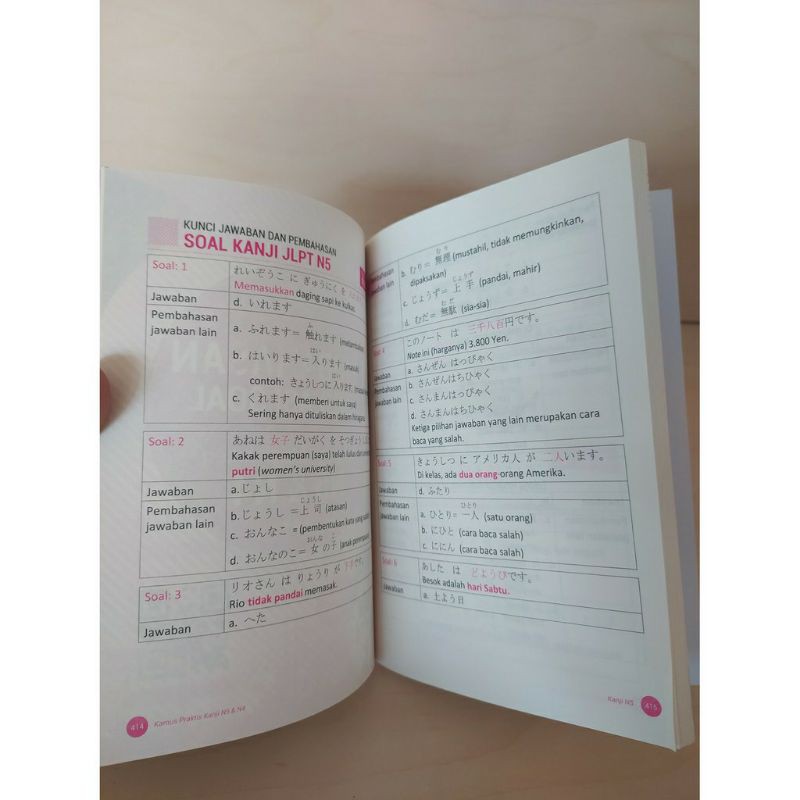 KUNCI JAWABAN DAN PEMBAHASAN
SOAL KANJI JLPT N5
Soal: 1
れいぞうこ に ぎゅうにく を
Memasukkan daging sapi ke kulkas.
Jawaban
d. いれます
Pembahasan
jawaban lain
a. ふれます= 触れます
b. はいります=入ります (masuk)
contoh: きょうしつに入ります
c. くれます (memberi untuk saya)
Sering hanya dituliskan dalam hiragana
Soal: 2
あねは 女子 だいがく を そつぎょう
Kakak perempuan (saya) telah lulus dari
putri (women's university)
Jawaban
a.じょし
Pembahasan
jawaban lain
じょうし
b.じょうし =上司 (atasan)
c. おんなこ = (pembentukan kata yang
おんな こ
d. おんなのこ= 女の子 (anak perempuan)
Soal: 3
リオさん は りょうり が 下手です。
Rio tidak pandai memasak.
Jawaban
a. へた
414
Kamus Praktis Kanji N5 & N4
Pembahasan
jawaban lain
むり
b. むり= 無理 (mustahil, tidak memungkinkan,
dipaksakan)
じょうず
c. じょうず= 上手 (pandai, mahir)
むだ
d. むだ= 無駄 (sia-sia)
Soal 4
このノート は 三千八百円です。
Note ini (harganya) 3.800 Yen.
Jawaban
a. さんぜん はっぴゃく
Pembahasan
jawaban lain
b. さんぜんはちひゃく
c. さんまんはっぴゃく
d. さんまんはちひゃく
Ketiga pilihan jawaban yang lain merupakan cara
baca yang salah.
Soal: 5
きょうしつ に アメリカ人 が 二人います。
Di kelas, ada dua orang-orang Amerika.
Jawaban
d. ふたり
Pembahasan
jawaban lain
ひとり
a. ひとり= 一人 (satu orang)
b. にひと (cara baca salah)
c. ににん (cara baca salah)
Soal: 6
あした は どようびです。
Besok adalah hari Sabtu.
Jawaban
a. 土よう日
Kanji N5
415